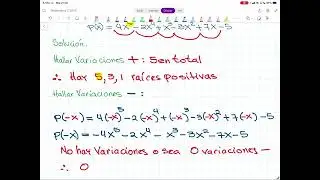 P(x) = 4x⁵ - 2x⁴ + x³ - 3x² + 7x - 5
Solución.
Hallar Variaciones + : 5 en total
∴ Hay 5, 3, 1 raíces positivas
Hallar Variaciones - :
P(-x) = 4(-x)⁵ - 2(-x)⁴ + (-x)³ - 3(-x)² + 7(-x) - 5
P(-x) = -4x⁵ - 2x⁴ - x³ - 3x² - 7x - 5
No hay Variaciones o sea 0 variaciones -
∴ 0